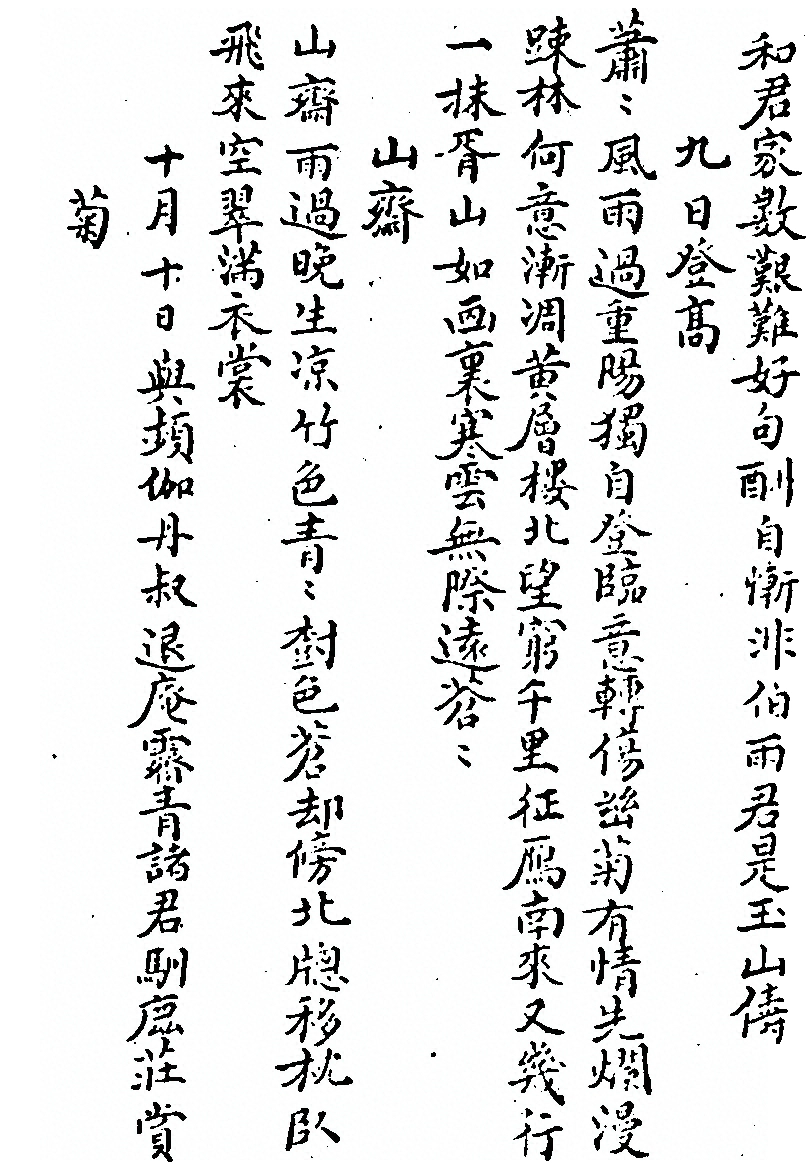 和君家數艱難好句酬自慚非伯雨君是玉山儔
九日登高
蕭〻風雨過重陽獨自登臨意轉傷籬菊有情先爛漫
踈林何意漸凋黃層樓北望窮千里征鴈南來又幾行
一抹胥山如画裏寒雲無際遠蒼〻
山齋
山齋雨過晚生凉竹色青〻樹色蒼却傍北牕移枕臥
飛來空翠滿衣裳
十月十日與頻伽丹叔退庵霽青諸君馴鹿莊賞
菊